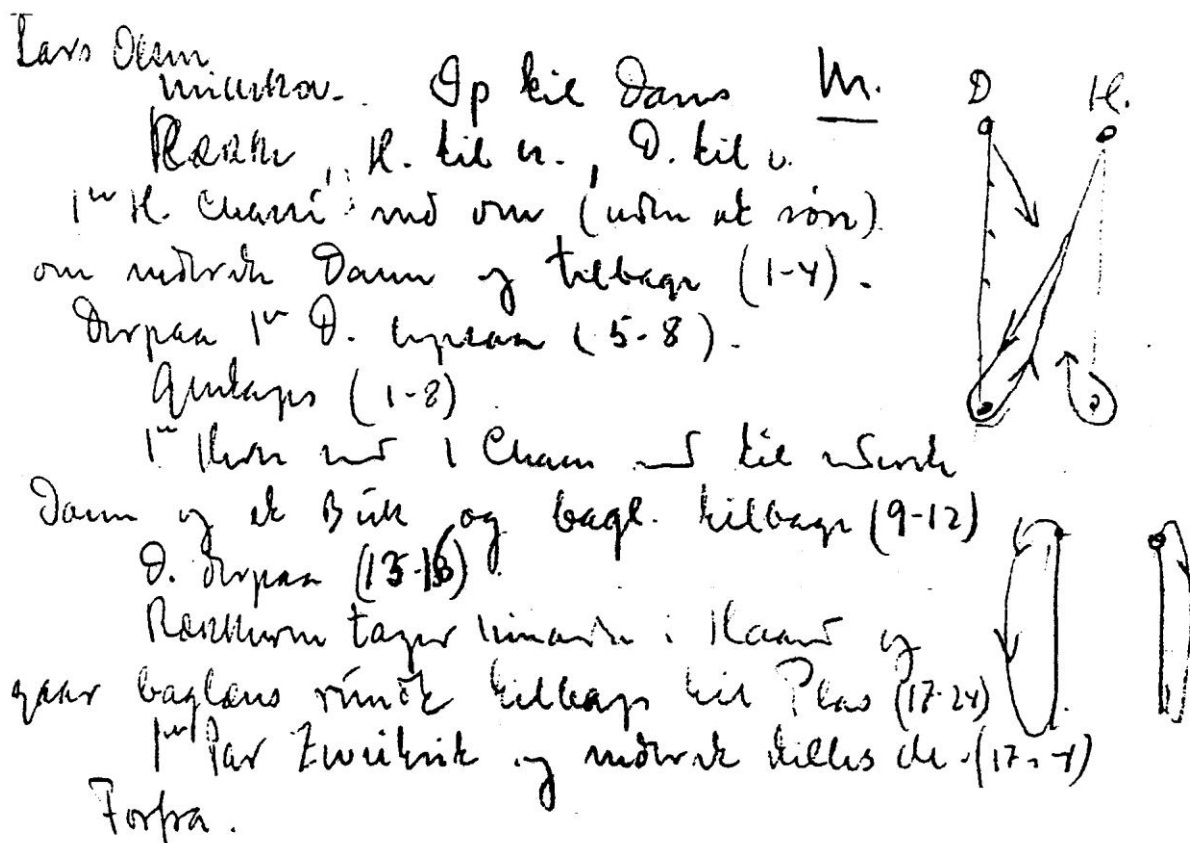 Lars Olsen
Op til Dans M. D H.
Række, H. til h., D. til v.
1ste H. Chassé ned om (uden at røre)
om nederste Dame og tilbage (1-4).
Derpaa 1ste D. ligesaa (5-8).
Gentages (1-8)
1ste Herre med 1 Chassé ned til nederste
Dame og et Buk og bagl. tilbage (9-12)
D. derpaa (13-16).
Rækkerne tager hinanden i Haand og
gaar baglæns rundt tilbage til Plads (17-24)
1ste Par Zweitrit og nederst stilles de (17-24)
Forfra.